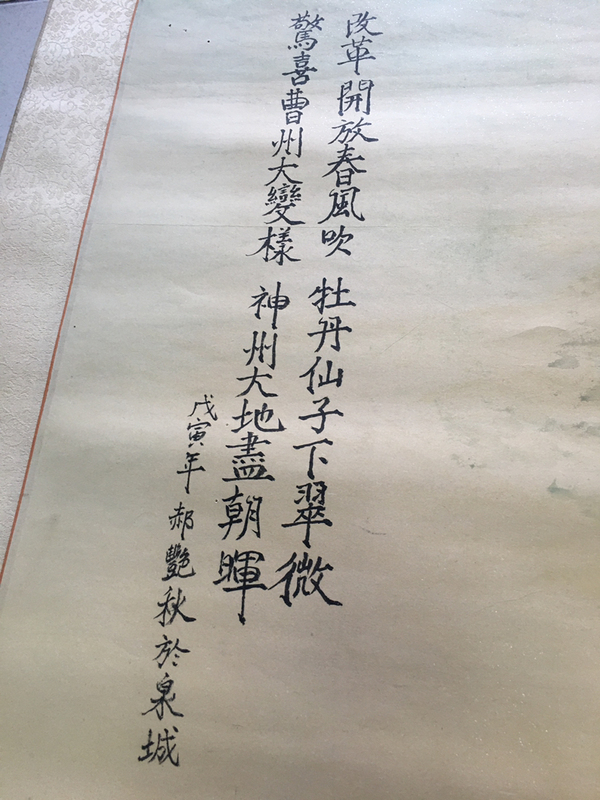 改革開放春風吹 牡丹仙子下翠微
驚喜曹州大變樣 神州大地盡朝暉
戊寅年 郝艷秋於泉城